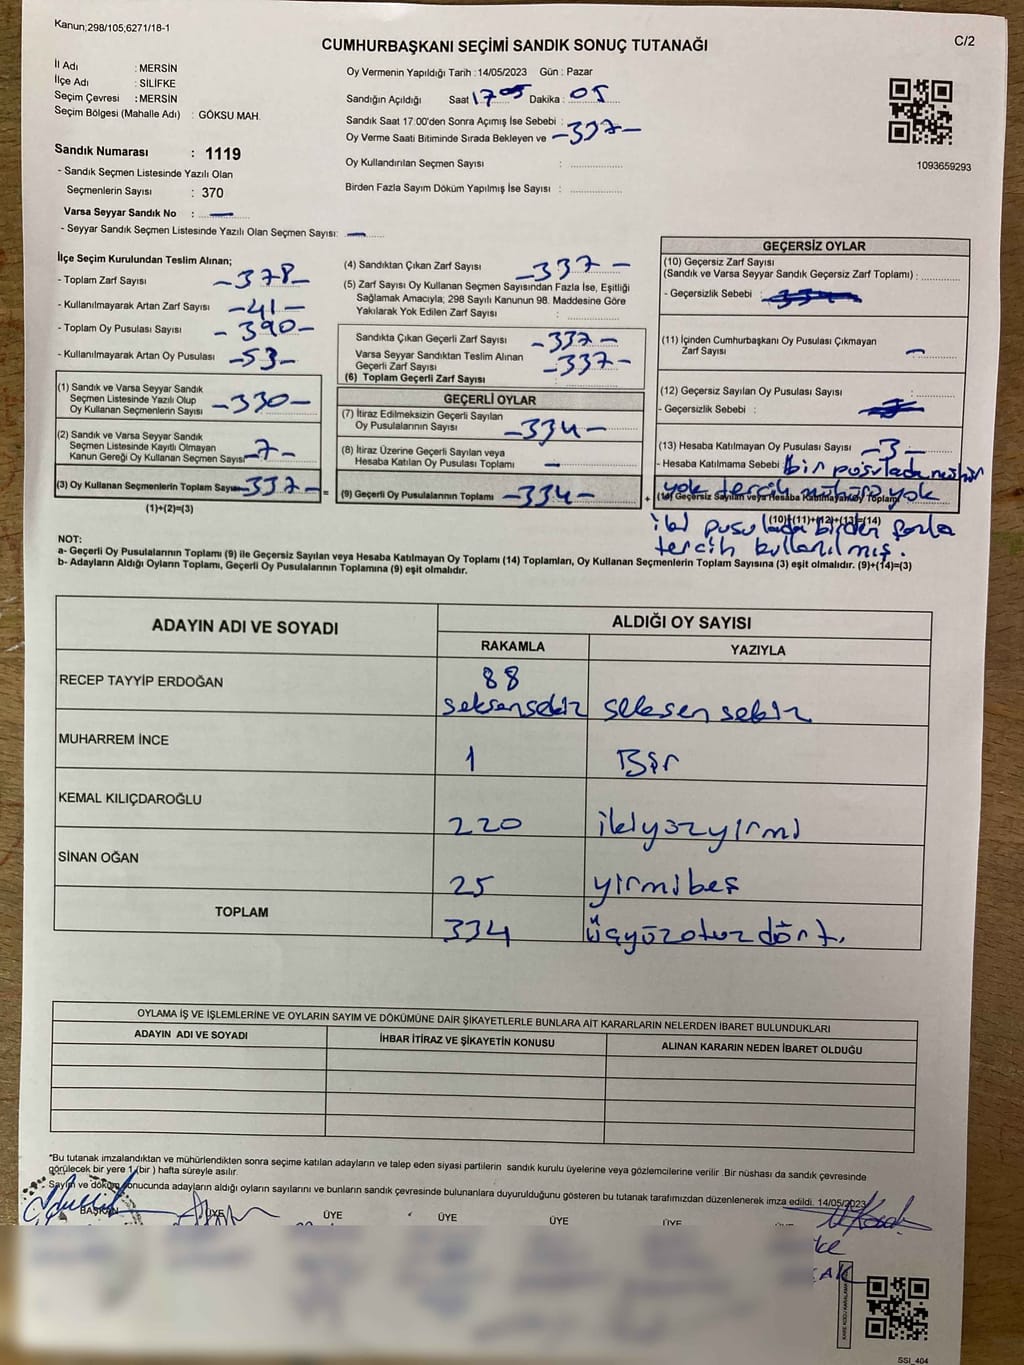 Kanun,298/105,6271/18-1
C/2
CUMHURBAŞKANI SEÇİMİ SANDIK SONUÇ TUTANAĞI
İl Adı : MERSİN
İlçe Adı : SİLİFKE
Seçim Çevresi : MERSİN
Seçim Bölgesi (Mahalle Adı) : GÖKSU MAH.
Sandık Numarası : 1119
- Sandık Seçmen Listesinde Yazılı Olan
Seçmenlerin Sayısı : 370
Varsa Seyyar Sandık No : —
- Seyyar Sandık Seçmen Listesinde Yazılı Olan Seçmen Sayısı: —
Oy Vermenin Yapıldığı Tarih : 14/05/2023 Gün : Pazar
Sandığın Açıldığı Saat 17 05 Dakika : 05
Sandık Saat 17:00'den Sonra Açımış İse Sebebi :
Oy Verme Saati Bitiminde Sırada Bekleyen ve —337—
Oy Kullandırılan Seçmen Sayısı :
Birden Fazla Sayım Döküm Yapılmış İse Sayısı :
1093659293
İlçe Seçim Kurulundan Teslim Alınan;
- Toplam Zarf Sayısı —378—
- Kullanılmayarak Artan Zarf Sayısı —41—
- Toplam Oy Pusulası Sayısı —390—
- Kullanılmayarak Artan Oy Pusulası —53—
(1) Sandık ve Varsa Seyyar Sandık
Seçmen Listesinde Yazılı Olup
Oy Kullanan Seçmenlerin Sayısı —330—
(2) Sandık ve Varsa Seyyar Sandık
Seçmen Listesinde Kayıtlı Olmayan
Kanun Gereği Oy Kullanan Seçmen Sayısı —7—
(3) Oy Kullanan Seçmenlerin Toplam Sayısı —337— =
(1)+(2)=(3)
(4) Sandıktan Çıkan Zarf Sayısı —337—
(5) Zarf Sayısı Oy Kullanan Seçmen Sayısından Fazla İse, Eşitliği
Sağlamak Amacıyla; 298 Sayılı Kanunun 98. Maddesine Göre
Yakılarak Yok Edilen Zarf Sayısı :
Sandıkta Çıkan Geçerli Zarf Sayısı —337—
Varsa Seyyar Sandıktan Teslim Alınan
Geçerli Zarf Sayısı —337—
(6) Toplam Geçerli Zarf Sayısı :
GEÇERLİ OYLAR
(7) İtiraz Edilmeksizin Geçerli Sayılan
Oy Pusulalarının Sayısı —334—
(8) İtiraz Üzerine Geçerli Sayılan veya
Hesaba Katılan Oy Pusulası Toplamı —
(9) Geçerli Oy Pusulalarının Toplamı —334— +
GEÇERSİZ OYLAR
(10) Geçersiz Zarf Sayısı
(Sandık ve Varsa Seyyar Sandık Geçersiz Zarf Toplamı) :
- Geçersizlik Sebebi :
(11) İçinden Cumhurbaşkanı Oy Pusulası Çıkmayan
Zarf Sayısı —
(12) Geçersiz Sayılan Oy Pusulası Sayısı :
- Geçersizlik Sebebi :
(13) Hesaba Katılmayan Oy Pusulası Sayısı —3—
- Hesaba Katılmama Sebebi bir pusulada mühür
yok tercih mührü yok
(14) Geçersiz Sayılan veya Hesaba Katılmayan Oy Toplamı
(10)+(11)+(12)+(13)=(14)
iki pusulada birden fazla
tercih kullanılmış.
NOT:
a- Geçerli Oy Pusulalarının Toplamı (9) ile Geçersiz Sayılan veya Hesaba Katılmayan Oy Toplamı (14) Toplamları, Oy Kullanan Seçmenlerin Toplam Sayısına (3) eşit olmalıdır. (9)+(14)=(3)
b- Adayların Aldığı Oyların Toplamı, Geçerli Oy Pusulalarının Toplamına (9) eşit olmalıdır.
ADAYIN ADI VE SOYADI
ALDIĞI OY SAYISI
RAKAMLA YAZIYLA
RECEP TAYYİP ERDOĞAN 88
seksensekiz seksen sekiz
MUHARREM İNCE 1 Bir
KEMAL KILIÇDAROĞLU 220 ikiyüzyirmi
SİNAN OĞAN 25 yirmibeş
TOPLAM 334 üçyüzotuzdört.
OYLAMA İŞ VE İŞLEMLERİNE VE OYLARIN SAYIM VE DÖKÜMÜNE DAİR ŞİKAYETLERLE BUNLARA AİT KARARLARIN NELERDEN İBARET BULUNDUKLARI
ADAYIN ADI VE SOYADI İHBAR İTİRAZ VE ŞİKAYETİN KONUSU ALINAN KARARIN NEDEN İBARET OLDUĞU
*Bu tutanak imzalandıktan ve mühürlendikten sonra seçime katılan adayların ve talep eden siyasi partilerin sandık kurulu üyelerine veya gözlemcilerine verilir. Bir nüshası da sandık çevresinde
görülecek bir yere 1 (bir ) hafta süreyle asılır.
Sayım ve döküm sonucunda adayların aldığı oyların sayılarını ve bunların sandık çevresinde bulunanlara duyurulduğunu gösteren bu tutanak tarafımızdan düzenlenerek imza edildi. 14/05/2023
BAŞKAN ÜYE ÜYE ÜYE ÜYE ÜYE
SSI_404